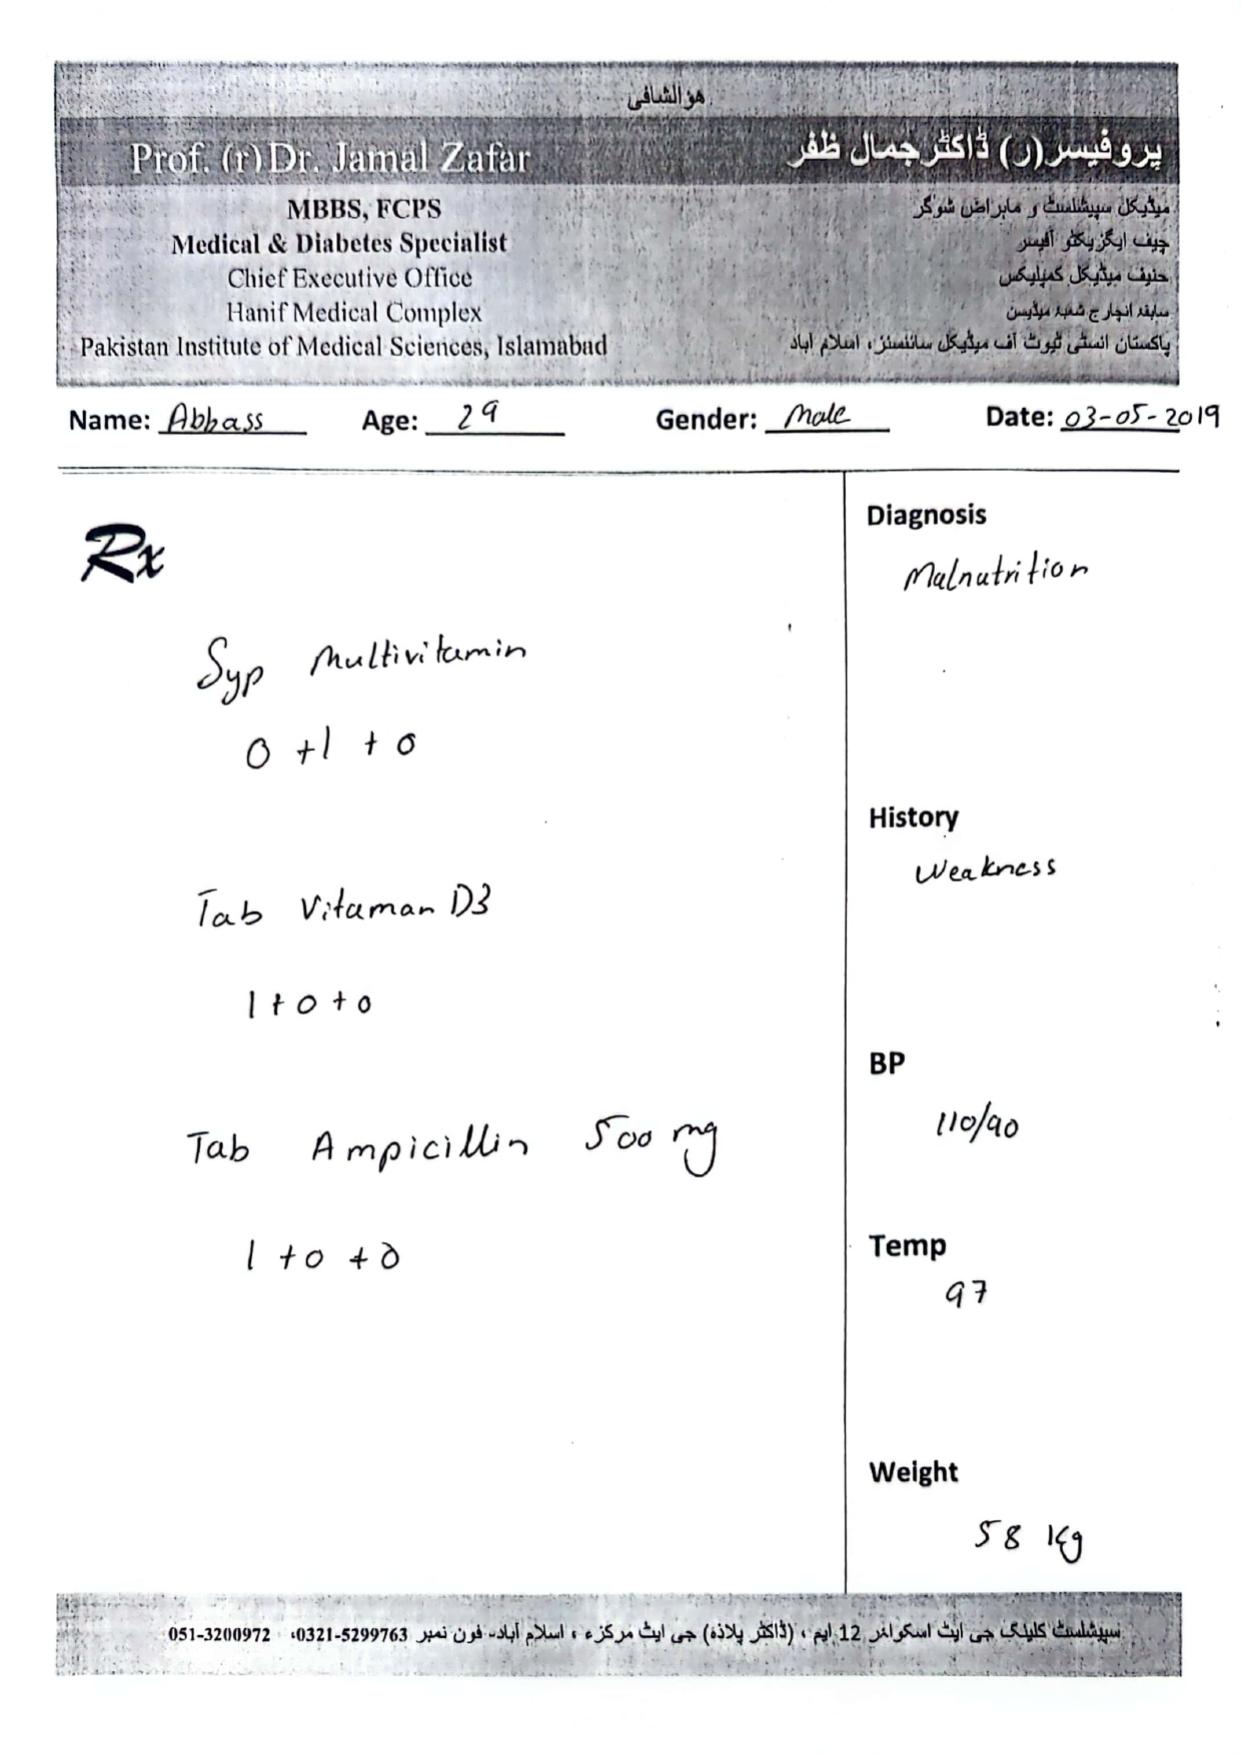 هو الشافی
Prof. (r) Dr. Jamal Zafar
پروفیسر(ر) ڈاکٹر جمال ظفر
MBBS, FCPS
Medical & Diabetes Specialist
Chief Executive Office
Hanif Medical Complex
Pakistan Institute of Medical Sciences, Islamabad
میڈیکل سپیشلسٹ و ماہر امراض شوگر
چیف ایگزیکٹو آفیسر
حنیف میڈیکل کمپلیکس
سابقہ انچارج شعبہ میڈیسن
پاکستان انسٹی ٹیوٹ آف میڈیکل سائنسز، اسلام آباد
Name: Abbass Age: 29 Gender: Male Date: 03-05-2019
Rx
Syp Multivitamin
0 + 1 + 0
Tab Vitaman D3
1 + 0 + 0
Tab Ampicillin 500 mg
1 + 0 + 0
Diagnosis
Malnutrition
History
Weakness
BP
110/90
Temp
97
Weight
58 Kg
سپیشلسٹ کلینک جی ایٹ اسکوائر 12 ایم ، (ڈاکٹر پلازہ) جی ایٹ مرکزء ، اسلام آباد۔ فون نمبر 0321-5299763، 051-3200972